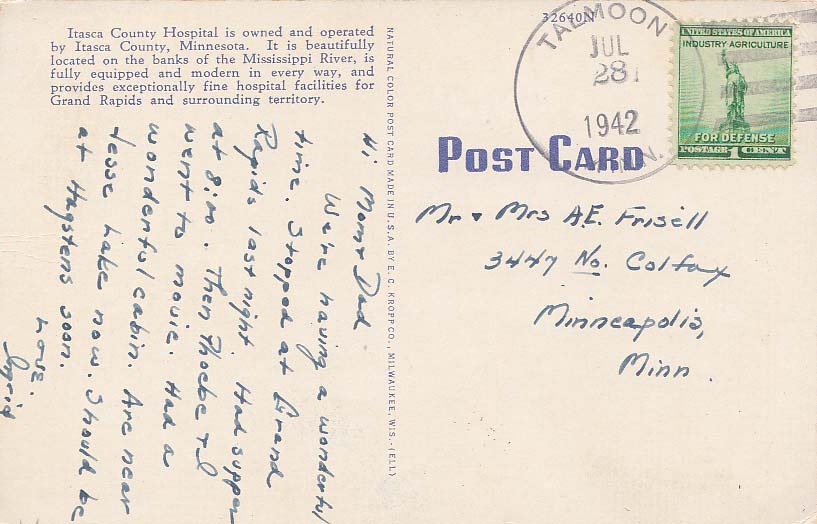 Itasca County Hospital is owned and operated
by Itasca County, Minnesota. It is beautifully
located on the banks of the Mississippi River, is
fully equipped and modern in every way, and
provides exceptionally fine hospital facilities for
Grand Rapids and surrounding territory.
Hi Mom & Dad
We're having a wonderful
time. Stopped at Grand
Rapids last night. Had supper
at 8:00. Then Phoebe & I
went to movie. Had a
wonderful cabin. Are near
Jesse Lake now. Should be
at Hagstens soon.
Love.
Ingrid
NATURAL COLOR POST CARD MADE IN U.S.A. BY E. C. KROPP CO., MILWAUKEE, WIS.-(ELL)
32640N
TALMOON
JUL
28
1942
MINN.
UNITED STATES OF AMERICA
INDUSTRY·AGRICULTURE
FOR DEFENSE
POSTAGE 1 CENT
POST CARD
Mr & Mrs A.E. Frisell
3447 No. Colfax
Minneapolis,
Minn.